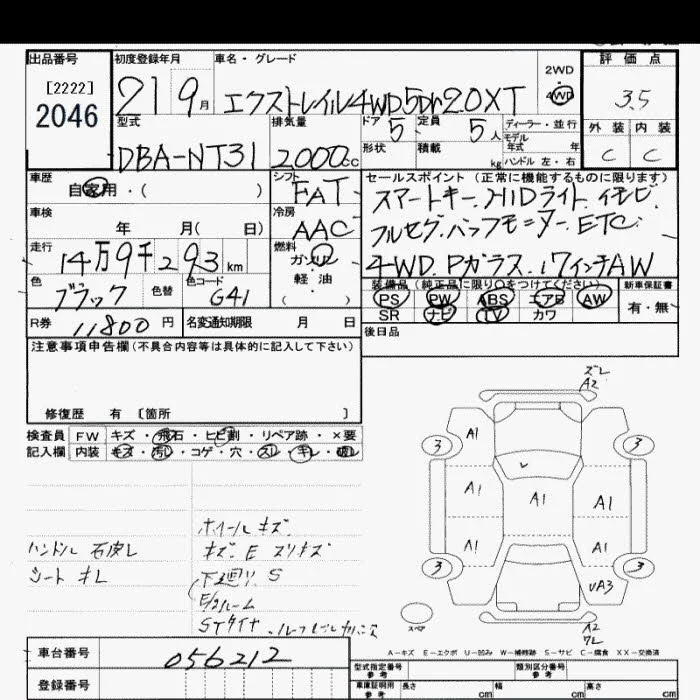 出品番号 初度登録年月 車名・グレード 評価点
[2222]
2046
21 9月 エクストレイル4WD.5Dr20XT
2WD
4WD
3.5
型式 排気量 ドア 5 定員 5人 ディーラー・並行
モデル
年式 年
外装 内装
DBA-NT31 2000cc 形状 積載 kg ハンドル 左・右
C C
車歴 シフト セールスポイント(正常に機能するものに限ります)
自家用・( ) FAT スマートキー.HIDライト.イモビ.
車検 冷房
年 月( 日) AAC フルセグ.バックモニター.ETC.
走行 燃料
14万9千293km ガソリン 4WD.Pガラス.17インチAW
色 色替 色コード 軽油
ブラック G41 ( )
装備品(純正品に限り○をつけてください) 新車保証書
PS PW ABS エアB AW 有・無
SR ナビ TV カワ
R券 11800円 名変通知期限 月 日 後日品
注意事項申告欄(不具合内容等は具体的に記入して下さい)
修復歴 有 〔箇所 〕
検査員 FW キズ・飛石・ヒビ割・リペア跡・×要
記入欄 内装 キズ・汚レ・コゲ・穴・スレ・キレ・破レ
ホイールキズ.
ハンドル 石皮レ キズ.E スリキズ
シート キレ 下廻り S
E/gルーム
STタイヤ.
ズレ
A2
3 A1 3
A1 A1 A1
A1 A1
3 3
UA3
スペア
A2
ワレ
A-キズ E-エクボ U-凹み W-補修跡 S-サビ C-腐食 XX-交換済
車台番号 056212
登録番号
型式指定番号 参考 類別区分番号 参考
車庫証明用 参考 長さ cm 幅 cm 高さ cm